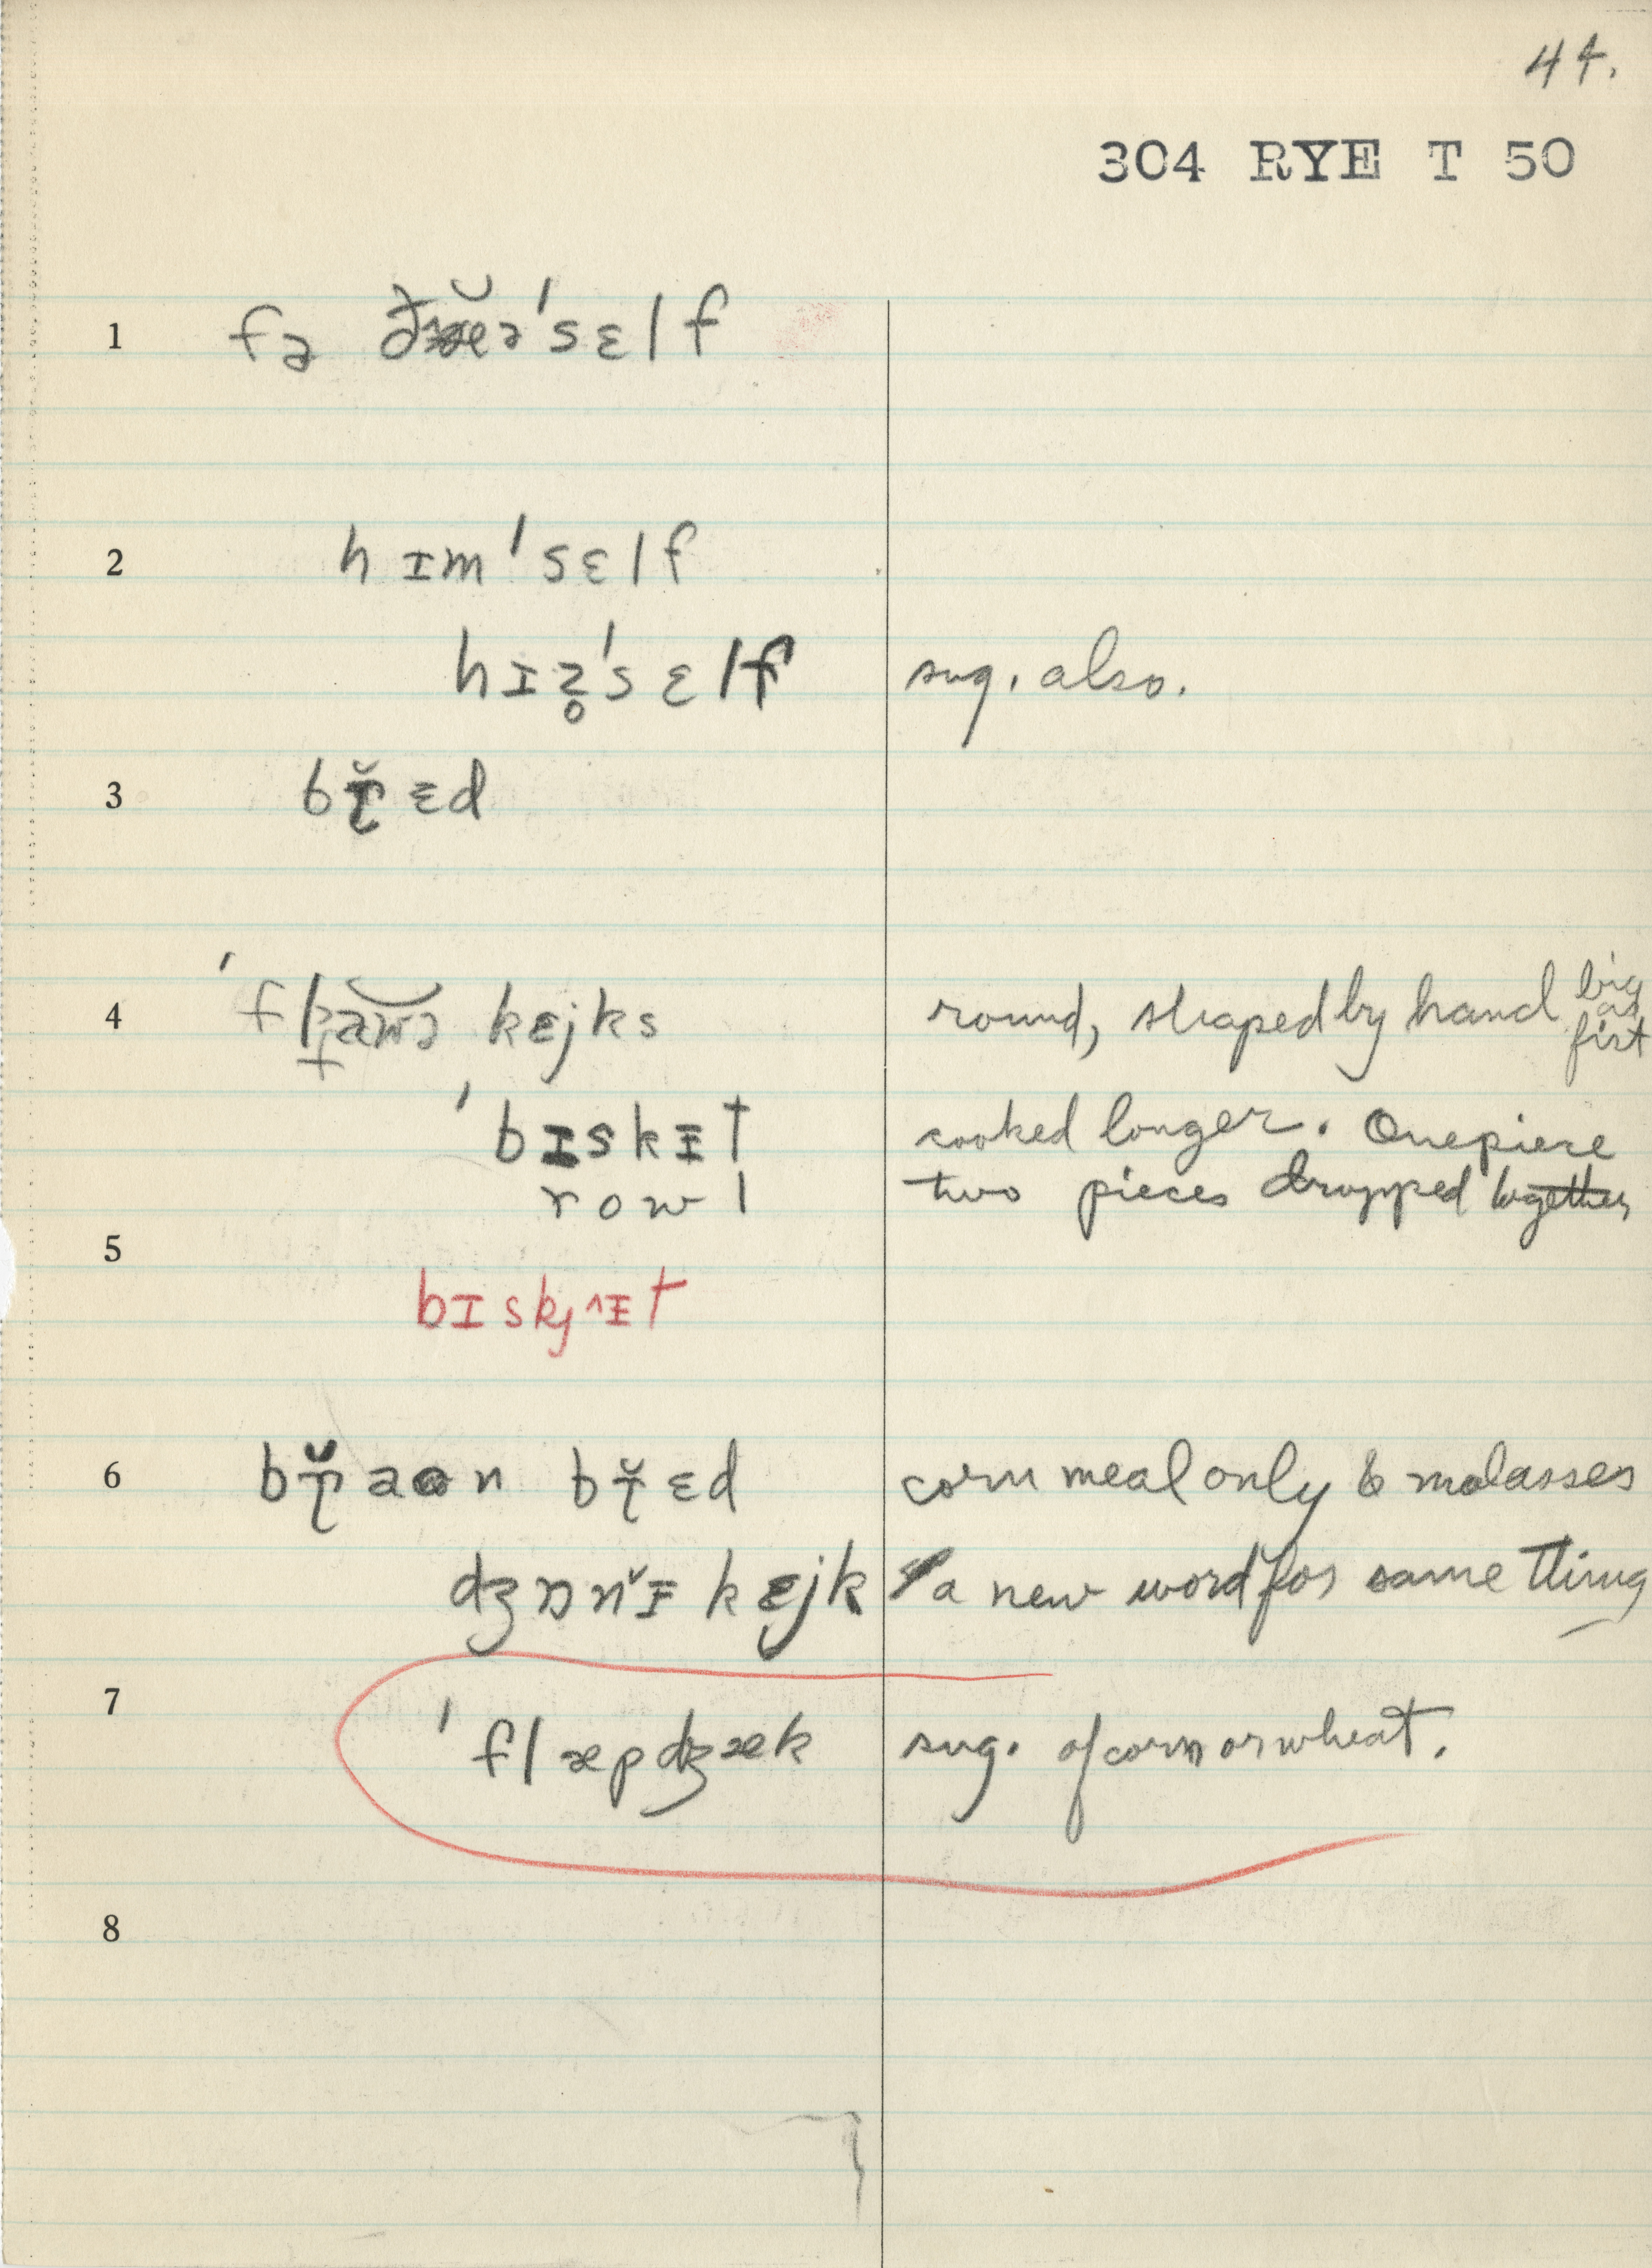 44.
304 RYE T 50
1 fə ðæə'sɛlf
2 hɪm'sɛlf
hɪz̥'sɛlf sug. also.
3 bɽ̆ɛd
4 'flaʊə kɛjks round, shaped by hand big as fist
'bɪskɪ̵t cooked longer. One piece
rowl two pieces dropped together
5
bɪskjɪ̵t
6 bɽ̆aɒn bɽ̆ɛd corn meal only & molasses
dʒɒnɪ̵ kɛjk a new word for same thing
7
'flæpdʒæk sug. of corn or wheat.
8